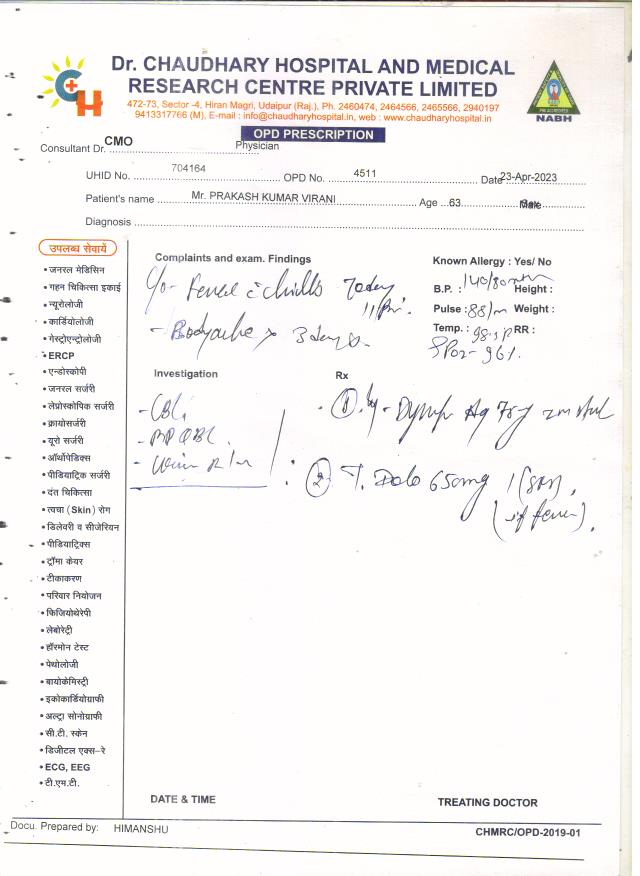 Dr. CHAUDHARY HOSPITAL AND MEDICAL
RESEARCH CENTRE PRIVATE LIMITED
472-73, Sector -4, Hiran Magri, Udaipur (Raj.), Ph. 2460474, 2464566, 2465566, 2940197
9413317766 (M), E-mail : info@chaudharyhospital.in, web : www.chaudharyhospital.in
NABH
OPD PRESCRIPTION
Consultant Dr. CMO Physician
UHID No. 704164 OPD No. 4511 Date 23-Apr-2023
Patient's name Mr. PRAKASH KUMAR VIRANI Age 63 Sex Male
Diagnosis
उपलब्ध सेवायें
• जनरल मेडिसिन
• गहन चिकित्सा इकाई
• न्यूरोलोजी
• कार्डियोलोजी
• गेस्ट्रोएन्ट्रोलोजी
• ERCP
• एन्डोस्कोपी
• जनरल सर्जरी
• लेप्रोस्कोपिक सर्जरी
• क्रायोसर्जरी
• यूरो सर्जरी
• ऑर्थोपेडिक्स
• पीडियाट्रिक सर्जरी
• दंत चिकित्सा
• त्वचा (Skin) रोग
• डिलेवरी व सीजेरियन
• पीडियाट्रिक्स
• ट्रॉमा केयर
• टीकाकरण
• परिवार नियोजन
• फिजियोथेरेपी
• लेबोरेट्री
• हॉरमोन टेस्ट
• पेथोलोजी
• बायोकेमिस्ट्री
• इकोकार्डियोग्राफी
• अल्ट्रा सोनोग्राफी
• सी.टी. स्केन
• डिजीटल एक्स-रे
• ECG, EEG
• टी.एम.टी.
Complaints and exam. Findings
c/o - Fever c chills Today
- Bodyache x 3 days.
Known Allergy : Yes/ No
B.P. : 140/80 Height :
Pulse : 88/m Weight :
Temp. : 98.1 F RR :
SPO2 - 96%
Investigation
- CBC
- MP QBC
- Urine R/m
Rx
① 75 stat
② T. Dolo 650mg 1 (SOS)
(if fever).
DATE & TIME
TREATING DOCTOR
Docu. Prepared by: HIMANSHU
CHMRC/OPD-2019-01